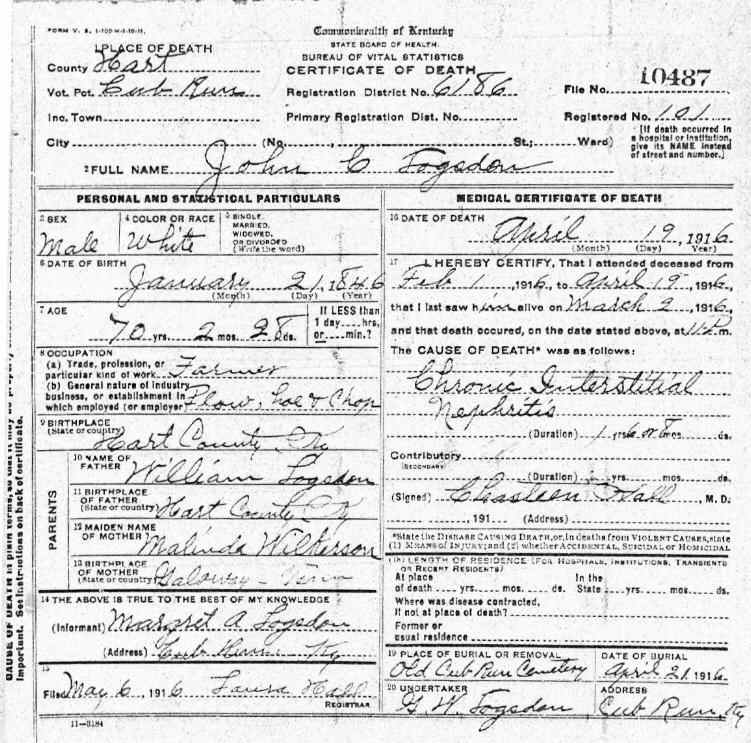 FORM V. S. 1-100 M-1-10-11.
Commonwealth of Kentucky
STATE BOARD OF HEALTH.
BUREAU OF VITAL STATISTICS
CERTIFICATE OF DEATH
1 PLACE OF DEATH
County Hart
Vot. Pct. Cub Run
Registration District No. 6186
File No. 10487
Inc. Town
Primary Registration Dist. No.
Registered No. 101
City (No. , St.; Ward)
[If death occurred in a hospital or institution, give its NAME instead of street and number.]
2 FULL NAME John C Logsdon
PERSONAL AND STATISTICAL PARTICULARS
3 SEX
Male
4 COLOR OR RACE
White
5 SINGLE, MARRIED, WIDOWED, OR DIVORCED (Write the word)
6 DATE OF BIRTH
January 21, 1846
(Month) (Day) (Year)
7 AGE
70 yrs. 2 mos. 28 ds.
If LESS than
1 day....hrs.
or....min.?
8 OCCUPATION
(a) Trade, profession, or
particular kind of work Farmer
(b) General nature of industry
business, or establishment in
which employed (or employer) Plow, hoe & Chop
9 BIRTHPLACE
(State or country) Hart County Ky
PARENTS
10 NAME OF
FATHER William Logsdon
11 BIRTHPLACE
OF FATHER
(State or country) Hart County Ky
12 MAIDEN NAME
OF MOTHER Malinda Wilkerson
13 BIRTHPLACE
OF MOTHER
(State or country) Galowey - Tenn
14 THE ABOVE IS TRUE TO THE BEST OF MY KNOWLEDGE
(Informant) Margret A Logsdon
(Address) Cub Run Ky
15
Filed May 6, 1916 Laura Hall
REGISTRAR
11—3184
MEDICAL CERTIFICATE OF DEATH
16 DATE OF DEATH
April 19, 1916
(Month) (Day) Year)
17 I HEREBY CERTIFY, That I attended deceased from
Feb 1 1916, to April 19 1916,
that I last saw him alive on March 2 1916,
and that death occured, on the date stated above, at m.
The CAUSE OF DEATH* was as follows:
Chronic Interstitial
Nephritis
(Duration) 1 yrs 6 or 8 mos. ds.
Contributory
(SECONDARY)
(Duration) yrs. mos. ds.
(Signed) Hall, M. D.
, 191 (Address)
*State the DISEASE CAUSING DEATH, or, in deaths from VIOLENT CAUSES, state
(1) MEANS OF INJURY; and (2) whether ACCIDENTAL, SUICIDAL or HOMICIDAL
(18) LENGTH OF RESIDENCE (FOR HOSPITALS, INSTITUTIONS, TRANSIENTS
OR RECENT RESIDENTS)
At place In the
of death yrs. mos. ds. State yrs. mos. ds.
Where was disease contracted,
if not at place of death?
Former or
usual residence
19 PLACE OF BURIAL OR REMOVAL
Old Cub Run Cemetery
DATE OF BURIAL
April 21, 1916
20 UNDERTAKER
G. W. Logsdon
ADDRESS
Cub Run, Ky
CAUSE OF DEATH in plain terms, so that it may be properly
Important. See instructions on back of certificate.